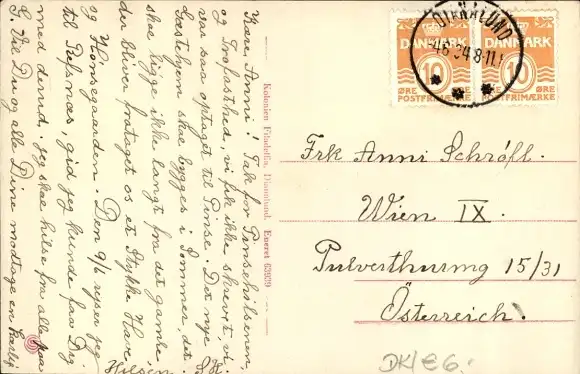 Kære Anni! Tak for Pinsehilsenen,
og Trofasthed, vi fik ikke skrevet, vi
var saa optaget til Pinse. Det nye
Gæstehjem skal bygges i Sommer, det
skal ligge ikke langt fra det gamle
der bliver frataget os et Stykke Have
og Hønsegaarden. Den 9/6 rejser jeg
til Refsnæs, gid jeg kunde faa Dig
med derud. jeg skal hilse fra alle her
Vil Du og alle Dine modtage en kærlig
Hilsen.
Kolonien Filadelfia, Dianalund. Eneret 63939
DIANALUND
6.34 8-11
DANMARK
10
ØRE
POSTFRIMÆRKE
DANMARK
10
ØRE
POSTFRIMÆRKE
Frk Anni Schröfl.
Wien IX.
Pulverthurmg 15/31
Österreich.
DK/€6.-